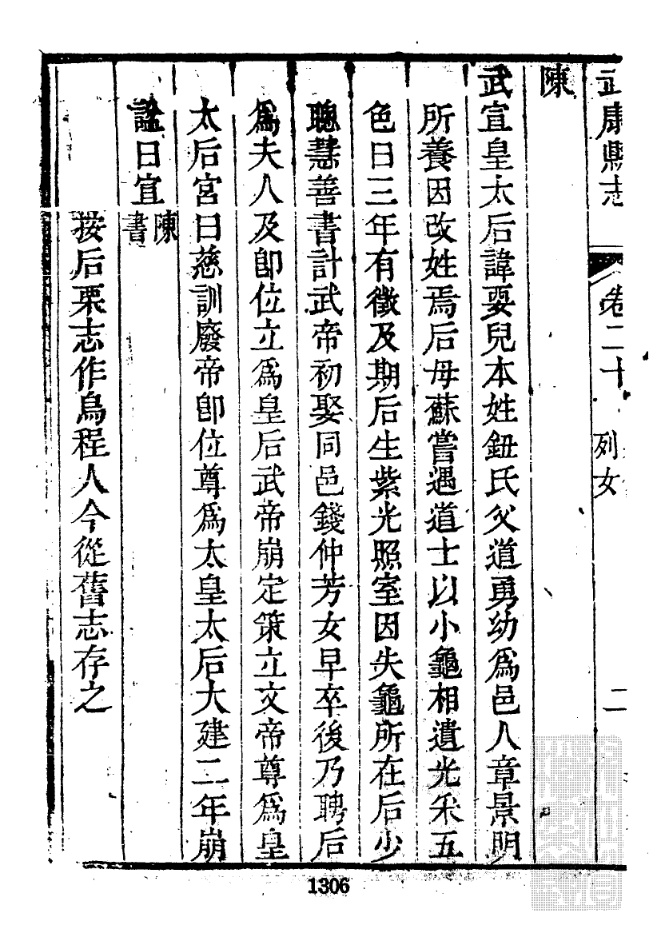 武康縣志
卷二十
列女
二
陳
武宣皇太后諱要兒本姓鈕氏父道勇幼爲邑人章景明
所養因改姓焉后母蘇嘗遇道士以小龜相遺光采五
色曰三年有徵及期后生紫光照室因失龜所在后少
聰慧善書計武帝初娶同邑錢仲芳女早卒後乃聘后
爲夫人及卽位立爲皇后武帝崩定策立文帝尊爲皇
太后宮曰慈訓廢帝卽位尊爲太皇太后大建二年崩
諡曰宣陳書
按后栗志作烏程人今從舊志存之
1306